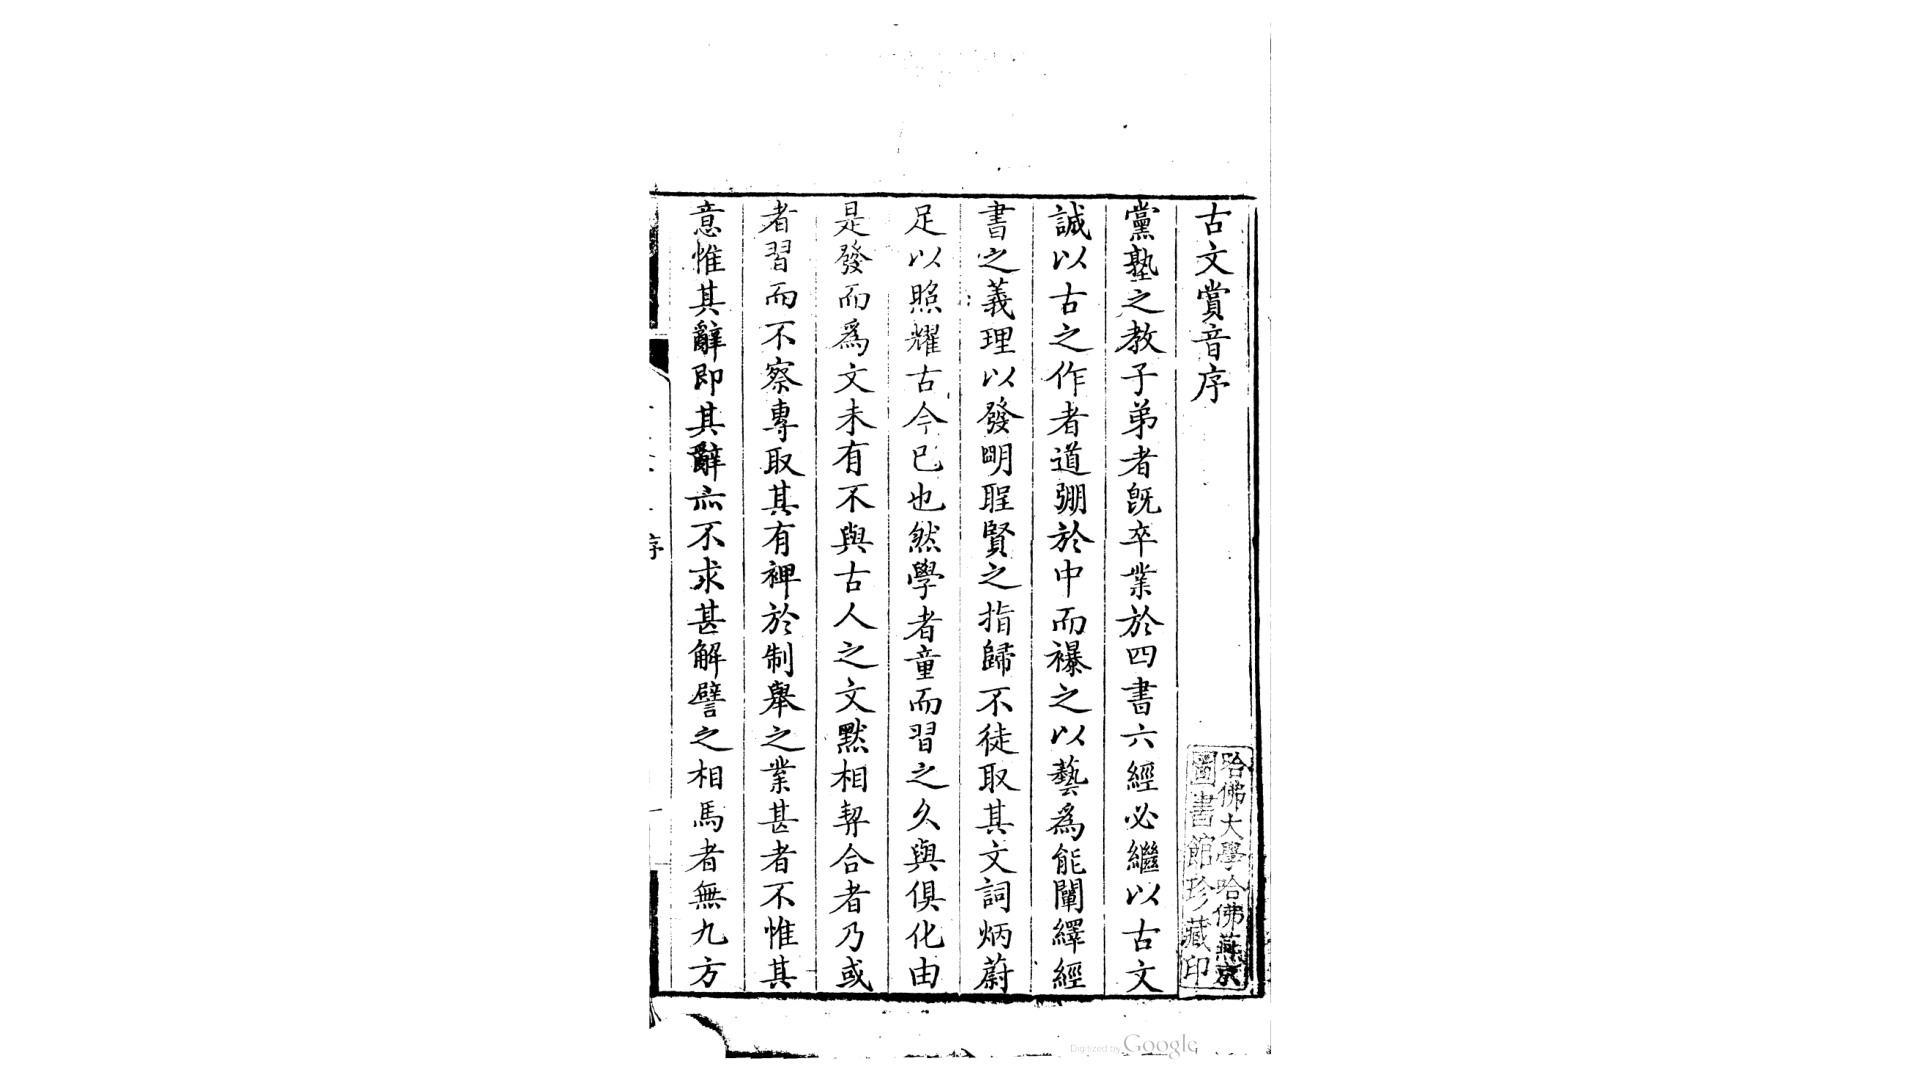 古文賞音序
黨塾之教子弟者旣卒業於四書六經必繼以古文
誠以古之作者道弸於中而襮之以藝爲能闡繹經
書之義理以發明聖賢之指歸不徒取其文詞炳蔚
足以照耀古今已也然學者童而習之久與俱化由
是發而爲文未有不與古人之文默相契合者乃或
者習而不察專取其有裨於制舉之業甚者不惟其
意惟其辭即其辭亦不求甚解譬之相馬者無九方
序
哈佛大學哈佛燕京
圖書館珍藏印
Digitized by Google